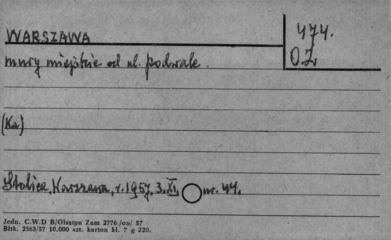 WARSZAWA
474.
O.Z
mury miejskie od ul. podwale.
(Ka)
Stolica, Warszawa, r. 1957, 3. XI, nr. 44.
Jedn. C.W.D B/Olsztyn Zam 2776 /oa/ 57
Bltk. 2563/57 10.000 szt. karton kl. 7 g 220.